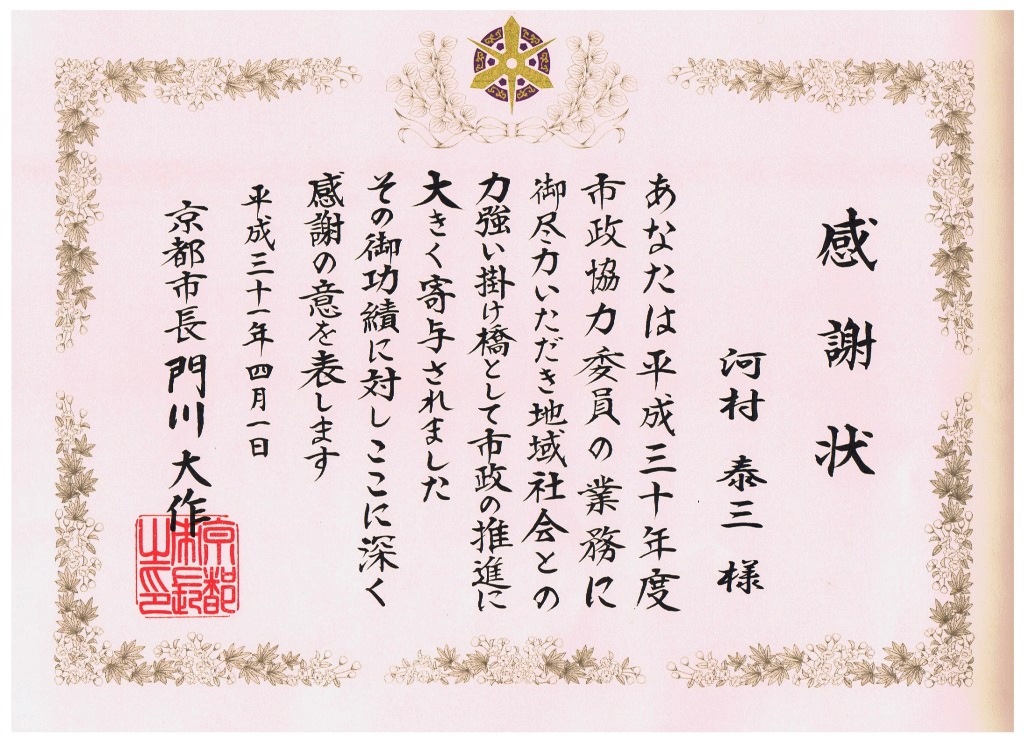 感謝状
河村 泰三 様
あなたは平成三十年度
市政協力委員の業務に
御尽力いただき地域社会との
力強い掛け橋として市政の推進に
大きく寄与されました
その御功績に対しここに深く
感謝の意を表します
平成三十一年四月一日
京都市長 門川大作
京都市長之印